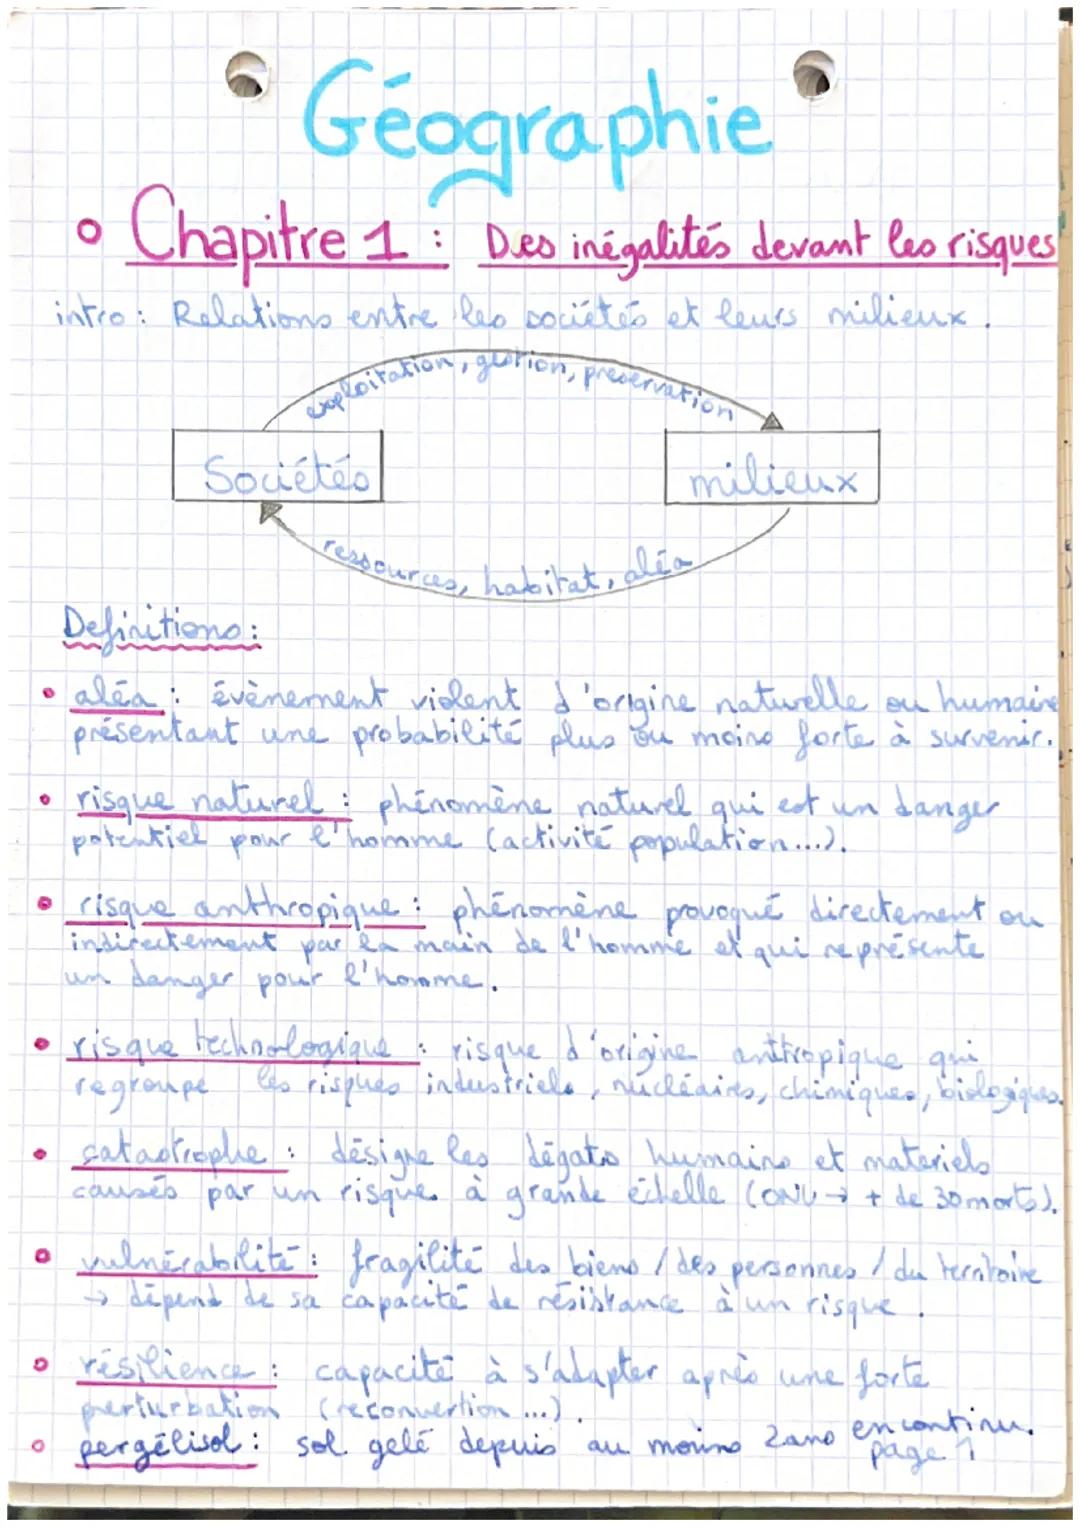 Géographie
• Chapitre 1 : Des inégalités devant les risques
intro : Relations entre les sociétés et leurs milieux.
exploitation, gestion, préservation
Sociétés
milieux
ressources, habitat, aléa
Definitions :
• aléa : évènement violent d'origine naturelle ou humaine
présentant une probabilité plus ou moins forte à survenir.
• risque naturel : phénomène naturel qui est un danger
potentiel pour l'homme (activité population...).
• risque anthropique : phénomène provoqué directement ou
indirectement par la main de l'homme et qui représente
un danger pour l'homme.
• risque technologique : risque d'origine anthropique qui
regroupe les risques industriels, nucléaires, chimiques, biologiques.
• catastrophe : désigne les dégats humains et materiels
causés par un risque à grande échelle (ONU → + de 30 morts).
• vulnérabilité : fragilité des biens / des personnes / du territoire
→ dépend de sa capacité de résistance à un risque.
• résilience : capacité à s'adapter après une forte
perturbation (reconvertion ...).
• pergélisol : sol gelé depuis au moins 2 ans en continu.
page 1